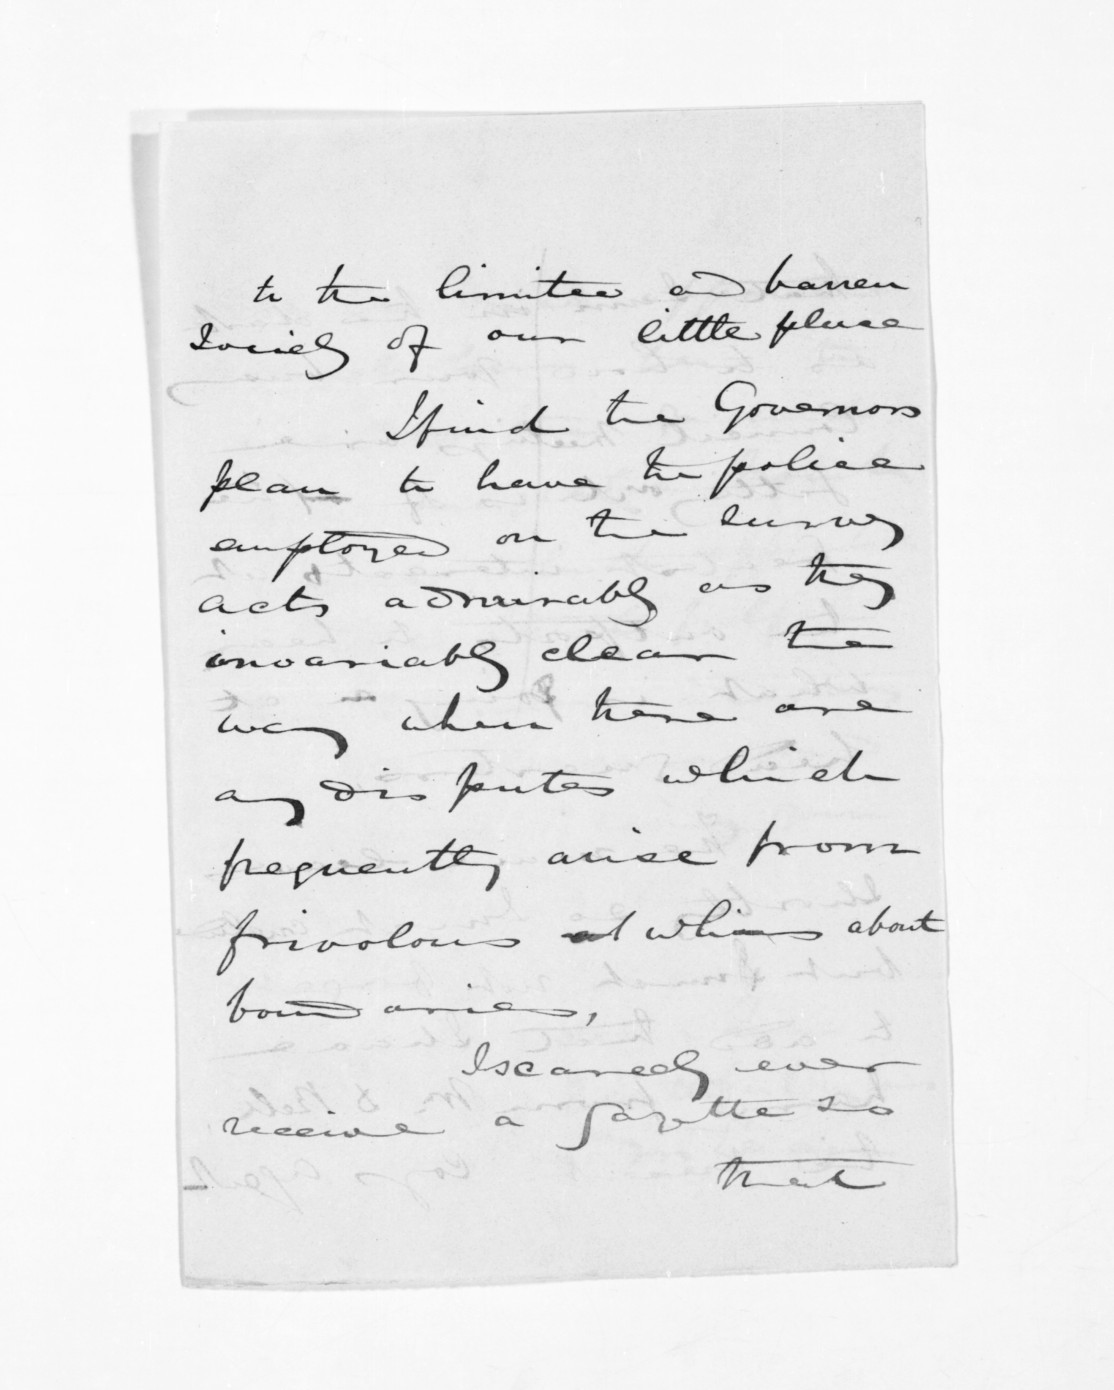 to the limited and barren
Society of our little place
I find the Governors
plan to have the police
employed on the survey
acts admirably as they
invariably clear the
way when there are
any disputes which
frequently arise from
frivolous whims about
boundaries,
I scarcely ever
receive a gazette so
that